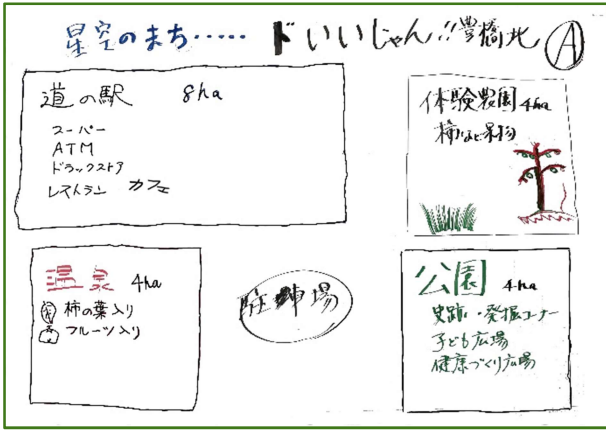 星空のまち…… ドいいじゃん!!豊橋北 Ⓐ
道の駅 8ha
スーパー
ATM
ドラックストア
レストラン カフェ
体験農園 4ha
柿など果物
温泉 4ha
柿の葉入り
フルーツ入り
駐車場
公園 4ha
史跡・発掘コーナー
子ども広場
健康づくり広場